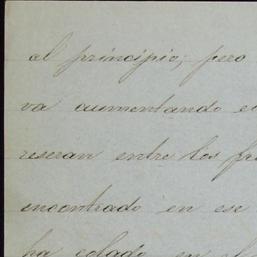 al principio; pero
va aumentando
reseran entre los
encontrado en ese
ha colado en el